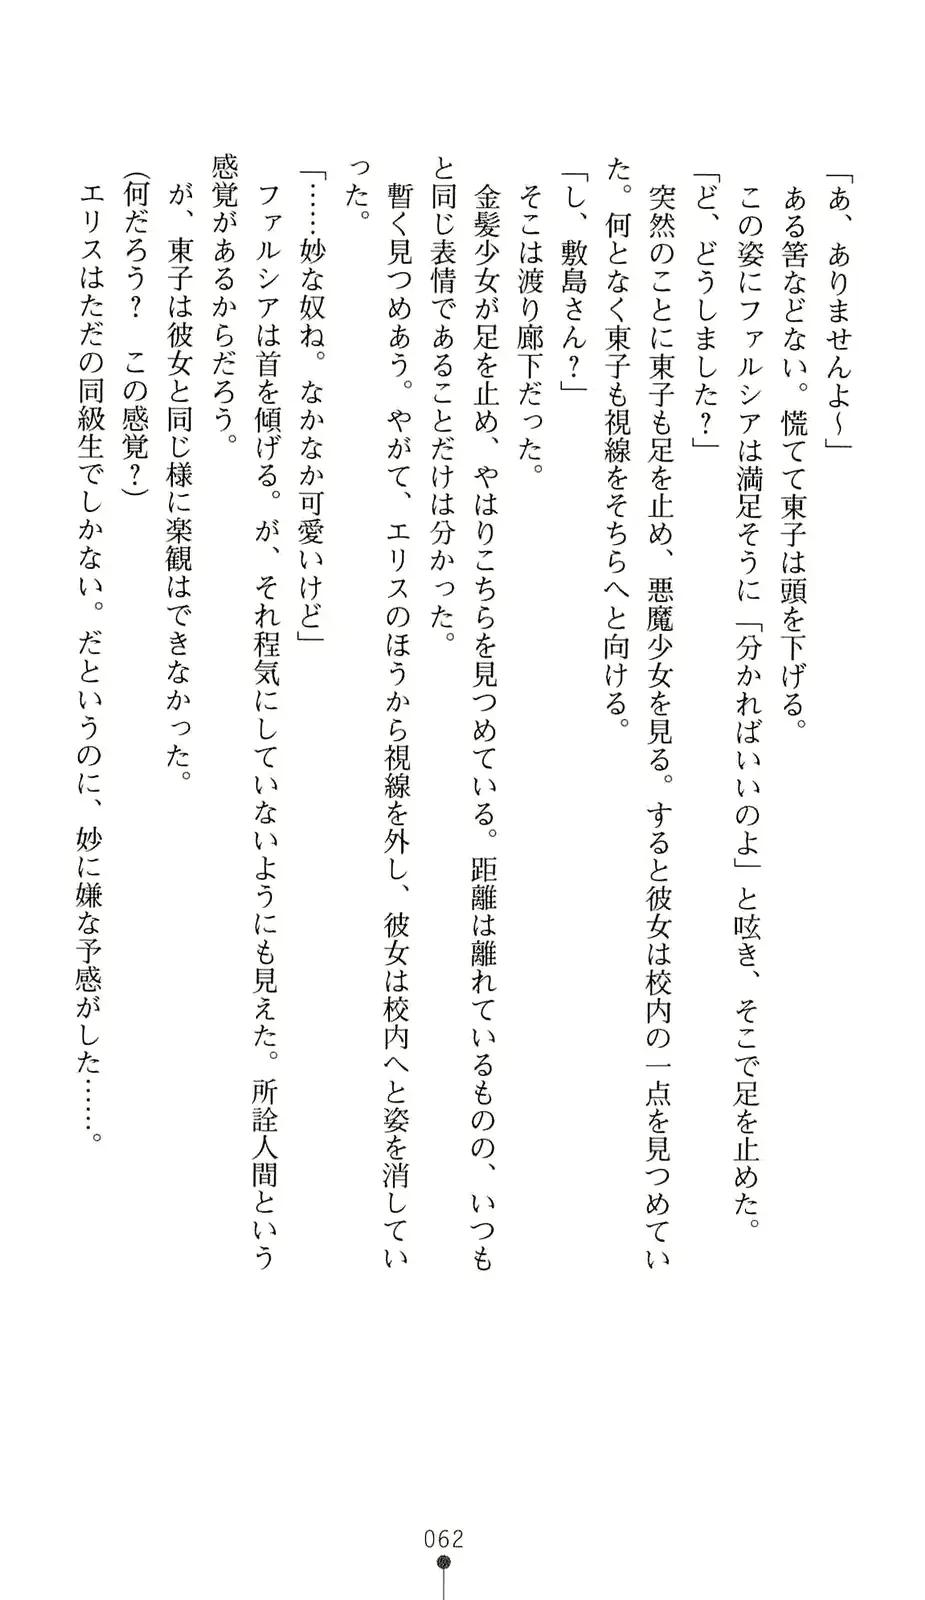 「あ、ありませんよ〜」
ある筈などない。慌てて東子は頭を下げる。
この姿にファルシアは満足そうに「分かればいいのよ」と呟き、そこで足を止めた。
「ど、どうしました？」
突然のことに東子も足を止め、悪魔少女を見る。すると彼女は校内の一点を見つめてい
た。何となく東子も視線をそちらへと向ける。
「し、敷島さん？」
そこは渡り廊下だった。
金髪少女が足を止め、やはりこちらを見つめている。距離は離れているものの、いつも
と同じ表情であることだけは分かった。
暫く見つめあう。やがて、エリスのほうから視線を外し、彼女は校内へと姿を消してい
った。
「……妙な奴ね。なかなか可愛いけど」
ファルシアは首を傾げる。が、それ程気にしていないようにも見えた。所詮人間という
感覚があるからだろう。
が、東子は彼女と同じ様に楽観はできなかった。
(何だろう？　この感覚？)
エリスはただの同級生でしかない。だというのに、妙に嫌な予感がした……。
062